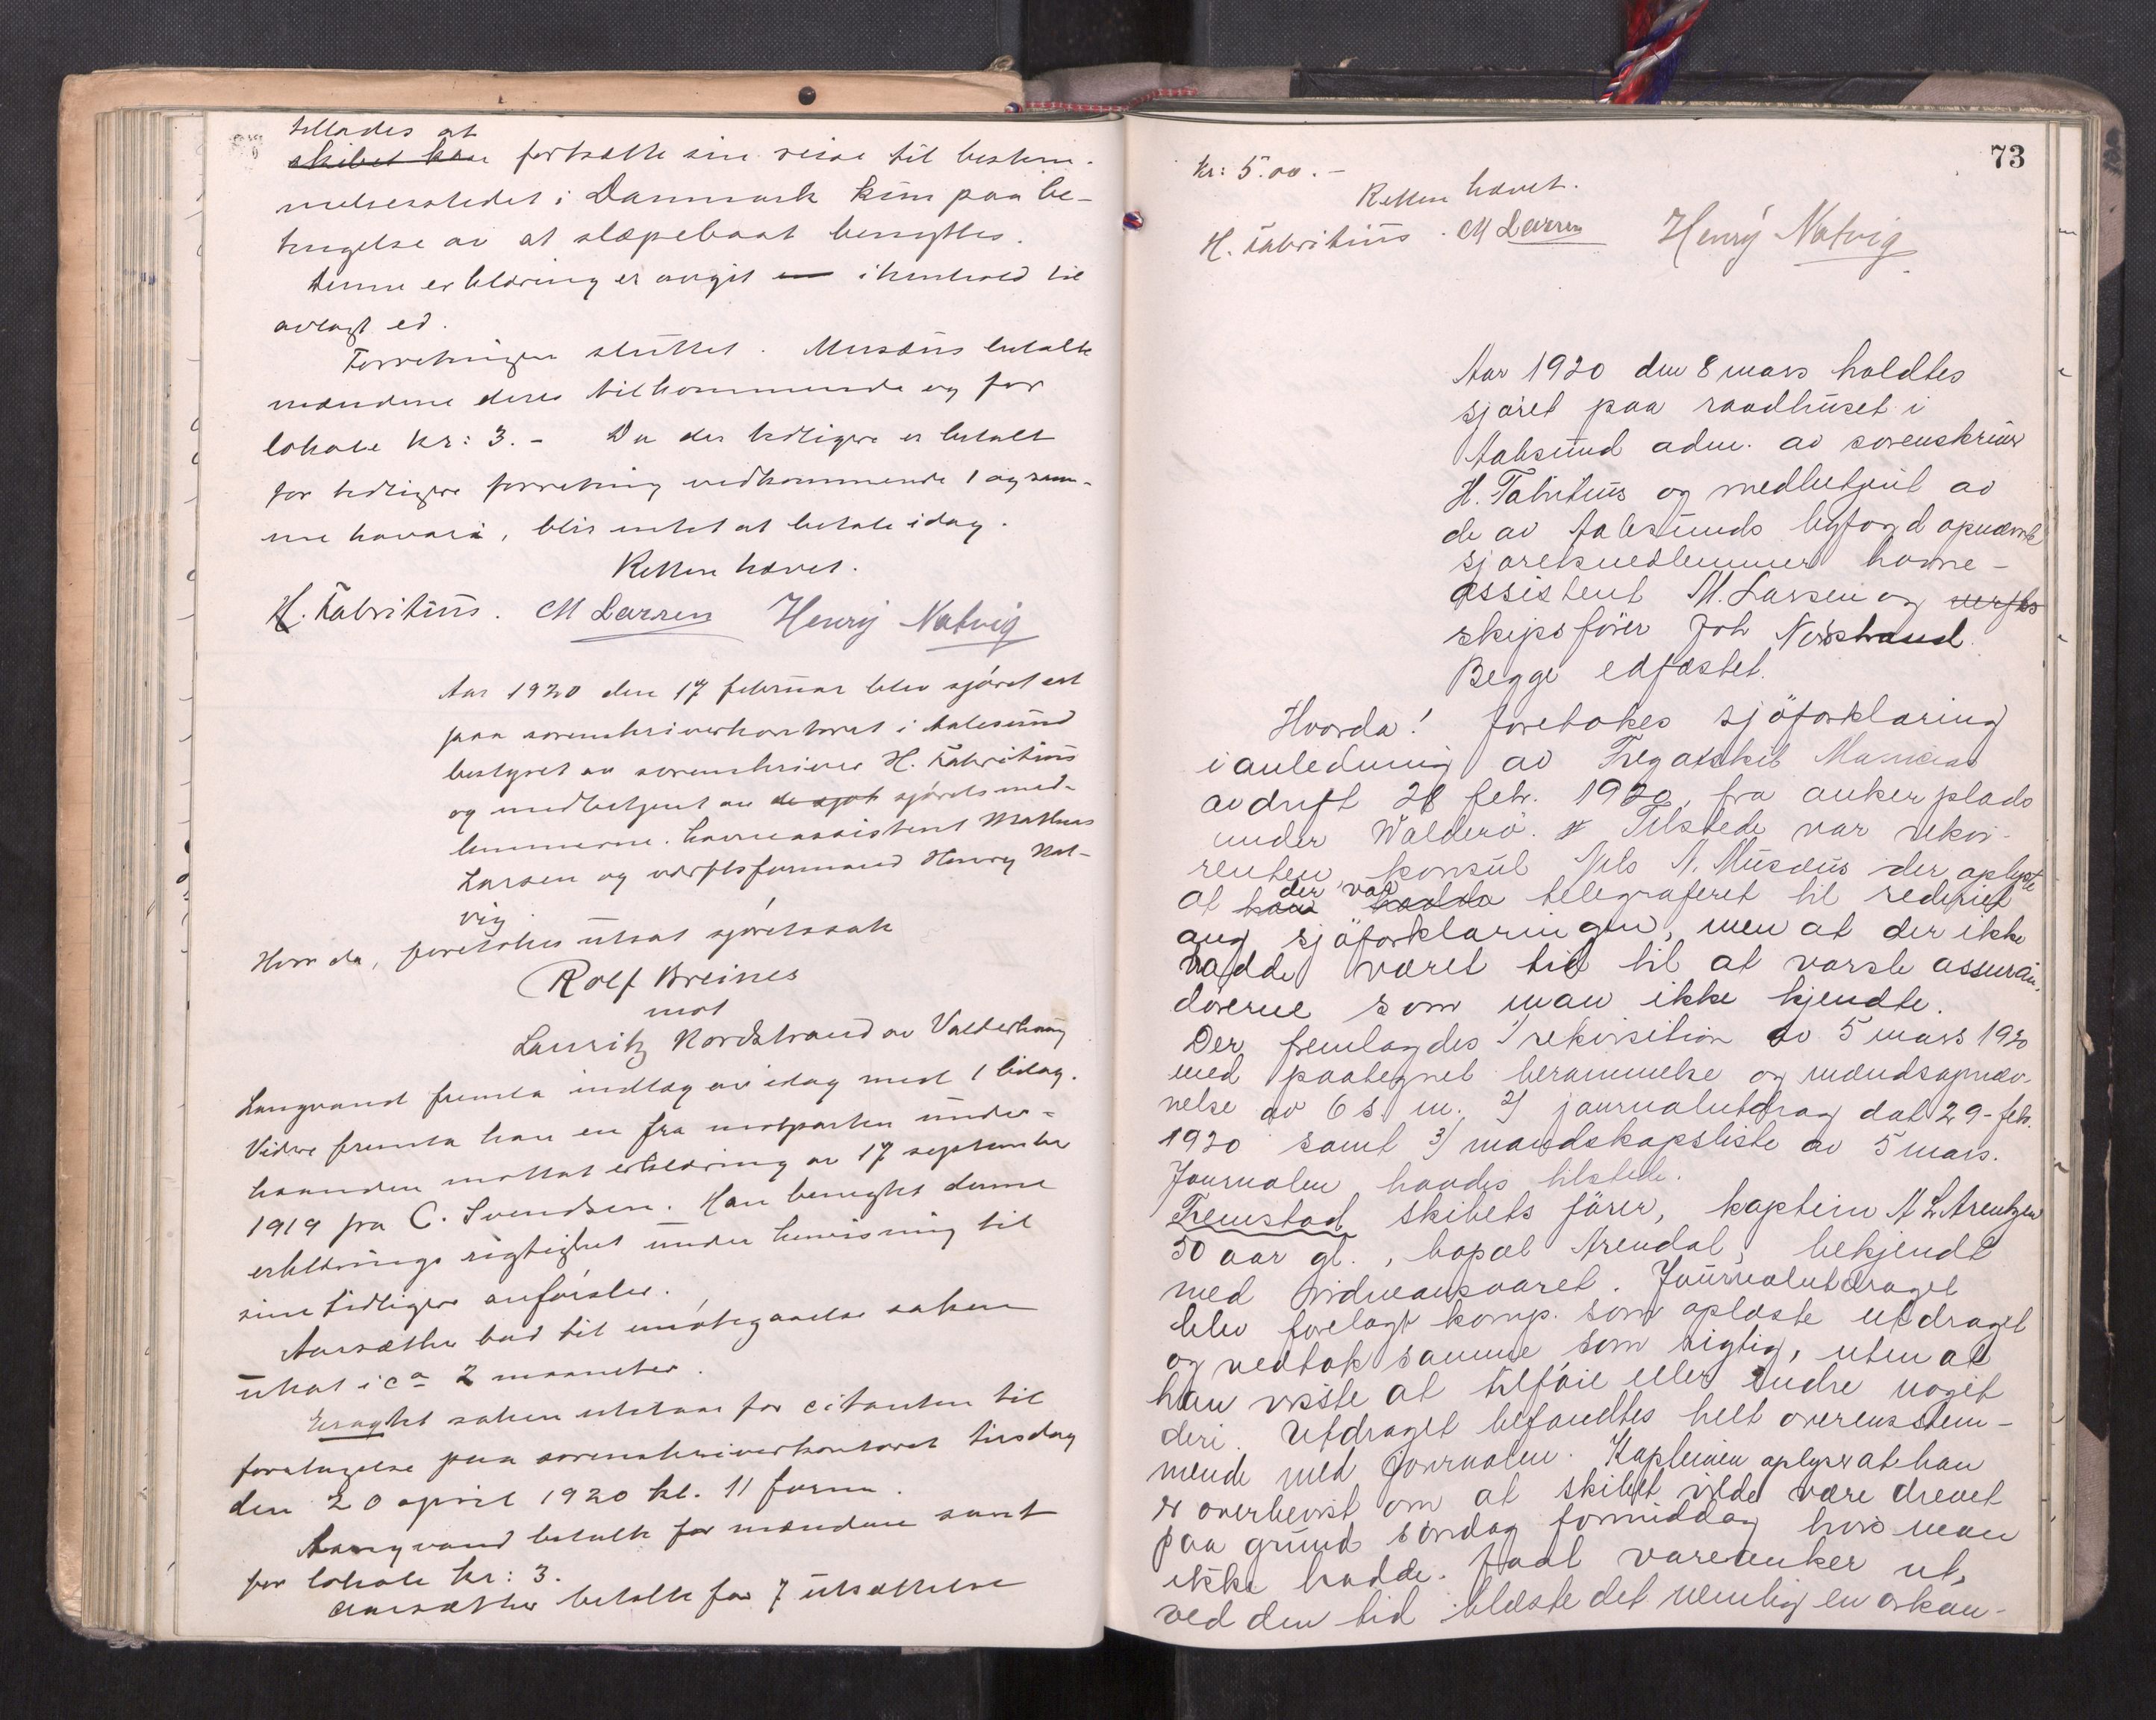 tillades at
skibet kan fortsætte sin reise til bestem-
melsesstedet i Danmark kun paa be-
tingelse av at slæpebaat benyttes.
Denne erklæring er avgit i henhold til
avlagt ed.
Forretningen sluttet. Musæus betalte
mændene deres tilkommende og for
lokale kr: 3.- Da der tidligere er betalt
for tidligere forretning vedkommende sam-
me havari, blir intet at betale idag.
Retten hævet.
H. Fabritius. M Larsen Henry Natvig
Aar 1920 den 17 februar blev sjøret sat
paa sorenskriverkontoret i Aalesund
bestyret av sorenskriver H. Fabritius
og medbetjent av de sjøret sjøretsmed-
lemmerne. havneassistent Mathias
Larsen og værftsformand Henry Nat-
vig
Hvor da, foretokes utsat sjøretssak
Rolf Breines
mot
Lauritz Nordstrand av Valderhaug
Langvand fremla indlæg av idag med 1 bilag.
Videre fremla han en fra motparten under-
haanden mottat erklæring av 17 september
1919 fra C. Svendsen. Han benegtet denne
erklærings rigtighet under henvisning til
sine tidligere anførsler.
Aarsæther bad til imøtegaaelse saken
utsat i ca 2 maaneder.
Eragtet saken utstaar for citanten til
foretagelse paa sorenskriverkontoret tirsdag
den 20 april 1920 kl. 11 form.
Langvand betalte for mændene samt
for lokale kr: 3.
Aarsæther betalte for 7 utsættelse
73
kr: 5.00.-
Retten hævet.
H. Fabritius. M Larsen Henry Natvig
Aar 1920 den 8 mars holdtes
sjøret paa raadhuset i
Aalesund adm. av sorenskriver
H. Fabritius og medbetjent av
de av Aalesunds byfogd opnævnte
sjøretsmedlemmer havne-
assistent M. Larsen og verfts
skipsfører Joh Norstrand.
Begge edfæstet.
Hvorda! foretokes sjöforklaring
i anledning av Fregatskib
avdrift 28 febr. 1920 fra ankerplads
under Walderö. Tilstede var rekvi-
renten konsul Nils N. Musæus der oplyste
der var
at han hadde telegraferet til rederiet
ang sjöforklaringen, men at der ikke
hadde været tid til at varsle assuran-
dörerne som man ikke kjendte.
Der fremlagdes 1/ rekvisition av 5 mars 1920
med paategnet berammelse og mændsopnæv-
nelse av 6 s. m. 2/ journalutdrag dat 29-feb.
1920 samt 3/ mandskapsliste av 5 mars.
Journalen havdes tilstede.
Fremstod skibets förer, kaptein A L Arentzen
50 aar gl., bopæl Arendal, bekjendt
med vidneansvaret. Journalutdraget
blev forelagt komp. som oplæste utdraget
og vedtok samme som rigtig, uten at
han viste at tilföie eller endre noget
deri. Utdraget befandtes helt overensstem-
mende med journalen. Kapteinen oplyser at han
er overbevist om at skibet vilde være drevet
paa grund söndag formiddag hvis man
ikke hadde faat vareanker ut,
ved den tid blæste det nemlig en orkan-